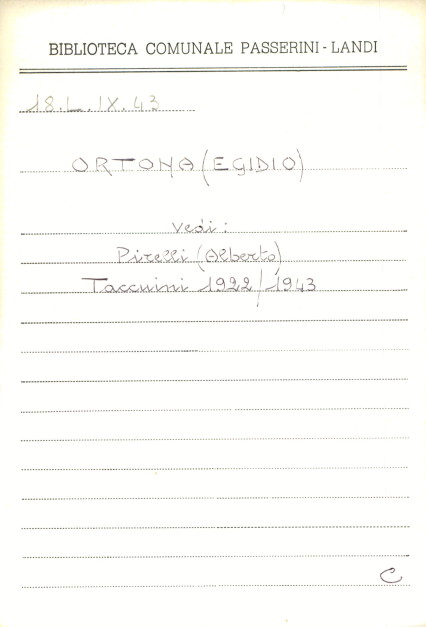 BIBLIOTECA COMUNALE PASSERINI - LANDI
18.L.IX.43
ORTONA (EGIDIO)
vedi:
Pirelli (Alberto)
Taccuini 1922/1943
C